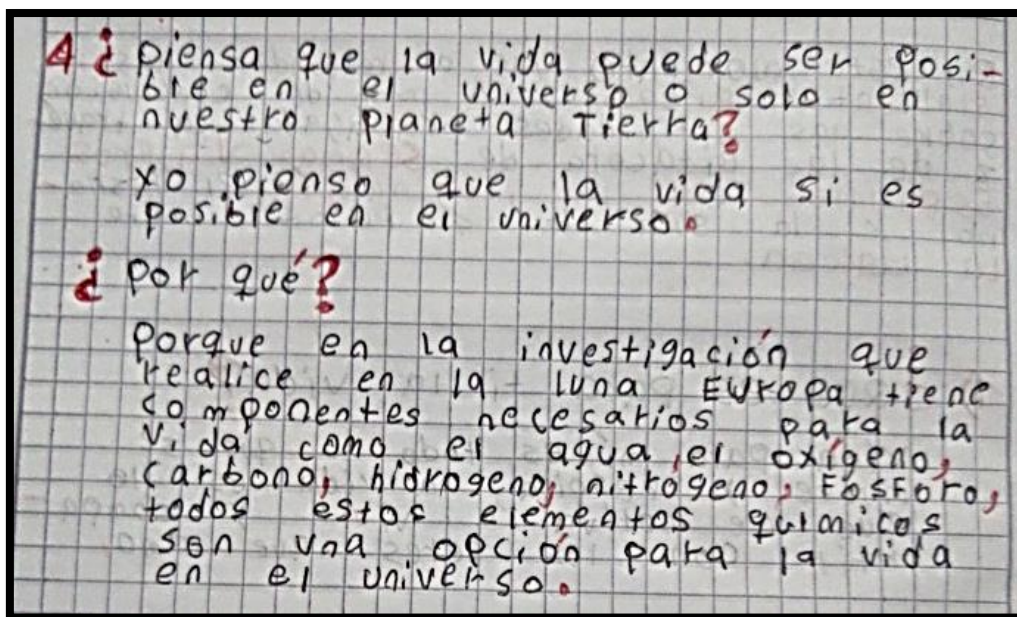 A ¿ piensa que la vida puede ser posi-
ble en el universo o solo en
nuestro planeta Tierra?
Yo pienso que la vida si es
posible en el universo.
¿ por qué?
porque en la investigación que
realice en la luna Europa tiene
componentes necesarios para la
vida como el agua, el oxígeno,
carbono, hidrogeno, nitrogeno, Fosforo,
todos estos elementos químicos
son una opción para la vida
en el universo.